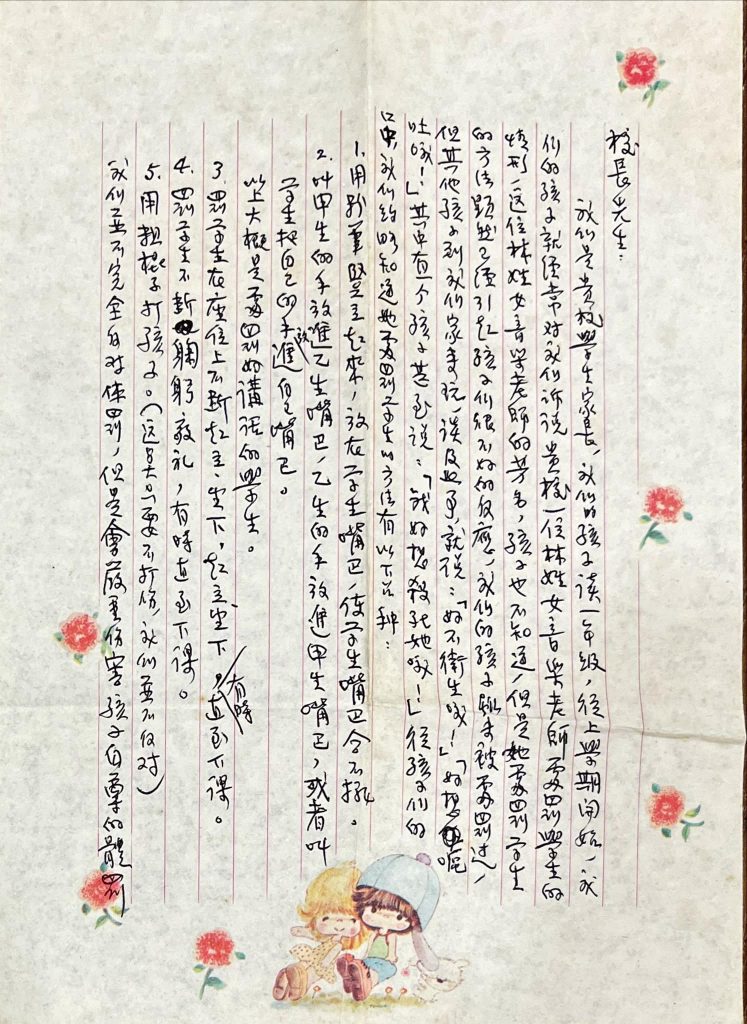 校長先生：
我们是貴校學生家長，我们的孩子读一年級，從上學期開始，我
们的孩子就经常对我们訴说貴校一位林姓女音樂老師處罰學生的
情形，这位林姓女音樂老師的芳名，孩子也不知道，但是她處罰学生
的方法顯然已经引起孩子们很不好的反應，我们的孩子雖未被處罰过，
但其他孩子到我们家来玩，谈及此事，就说：「好不衛生哦！」「好想嘔
吐哦！」其中有一个孩子甚至说：「我好想殺死她哦！」從孩子们的
口中，我们约略知道她處罰学生的方法有以下几种：
1. 用粉筆豎立起來，放在学生嘴巴，使学生嘴巴合不攏。
2. 叫甲生的手放進乙生嘴巴，乙生的手放進甲生嘴巴，或者叫
学生把自己的手放進自己嘴巴。
以上大概是處罰好講话的學生。
3. 罰学生在座位上不断起立、坐下，起立坐下，有時直至下課。
4. 罰学生不断鞠躬敬礼，有時直至下課。
5. 用粗棍子打孩子。（这点只要不打伤，我们並不反对）
我们並不完全反对体罰，但是會嚴重伤害孩子自尊的體罰